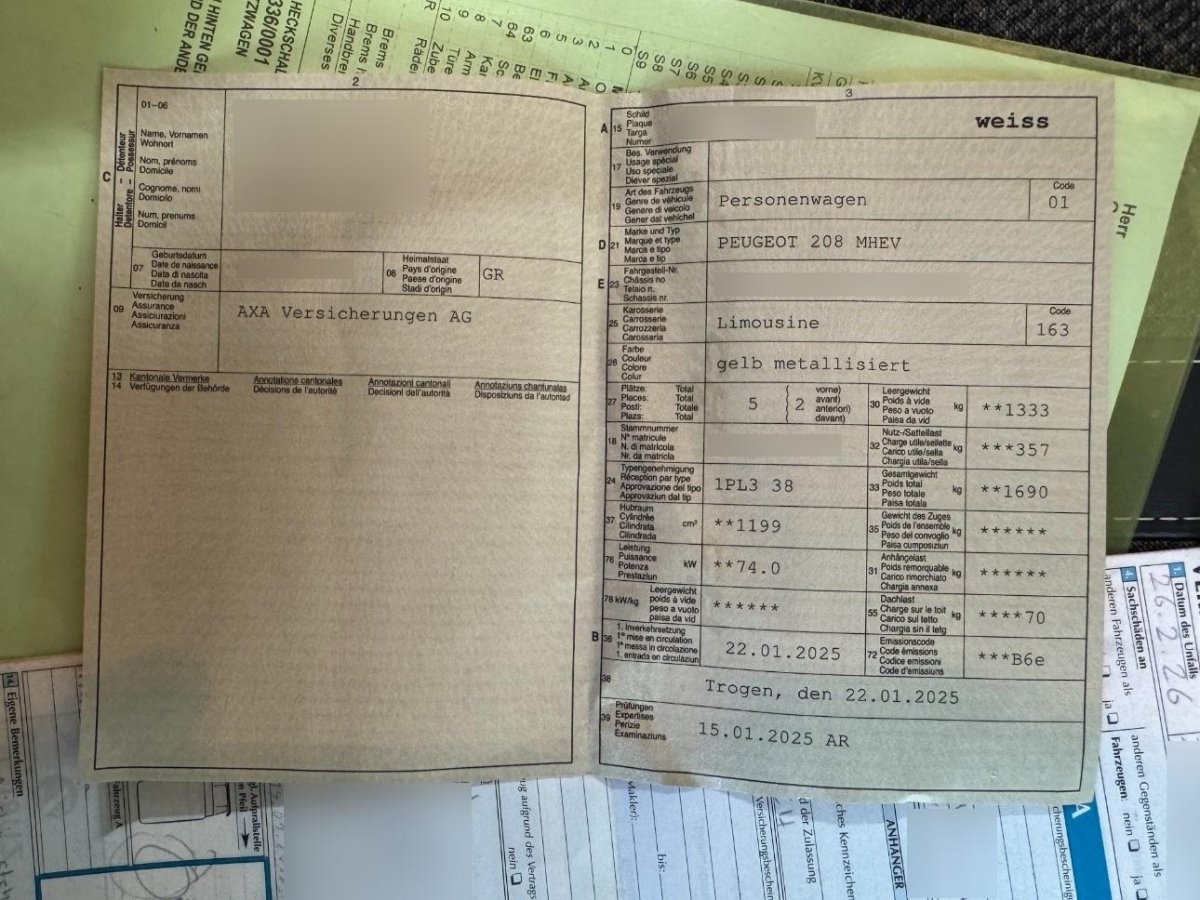 HECKSCHAL
336/0001
ZWAGEN
HINTEN GE
D DER ANDE
Brems
Brems
Handbre
Diverses
S9
S8
S7
S6
S5
0
1
2
3
5
6
63
64
7
8
9
10
Türe
Zube
Räde
Herr
2
01–06
Name, Vornamen
Wohnort
Nom, prénoms
Domicile
Cognome, nomi
Domicilio
Num, prenums
Domicil
C
Halter – Détenteur
Detentore – Possessur
07
Geburtsdatum
Date de naissance
Data di nascita
Data da nasch
08
Heimatstaat
Pays d'origine
Paese d'origine
Stadi d'origin
GR
09
Versicherung
Assurance
Assicurazioni
Assicuranza
AXA Versicherungen AG
13 Kantonale Vermerke
14 Verfügungen der Behörde
Annotations cantonales
Décisions de l'autorité
Annotazioni cantonali
Decisioni dell'autorità
Annotaziuns chantunalas
Disposiziuns da l'autoritad
3
A 15
Schild
Plaque
Targa
Numer
weiss
17
Bes. Verwendung
Usage spécial
Uso speciale
Diever spezial
19
Art des Fahrzeugs
Genre de véhicule
Genere di veicolo
Gener dal vehichel
Personenwagen
Code
01
D 21
Marke und Typ
Marque et type
Marca e tipo
Marca e tip
PEUGEOT 208 MHEV
E 23
Fahrgestell-Nr.
Châssis no
Telaio n.
Schassis nr.
25
Karosserie
Carrosserie
Carrozzeria
Carossaria
Limousine
Code
163
26
Farbe
Couleur
Colore
Colur
gelb metallisiert
27
Plätze: Total
Places: Total
Posti: Totale
Plazs: Total
5
2
vorne)
avant)
anteriori)
davant)
30
Leergewicht
Poids à vide
Peso a vuoto
Paisa da vid
kg
**1333
18
Stammnummer
N° matricule
N. di matricola
Nr. da matricla
32
Nutz-/Sattellast
Charge utile/sellette
Carico utile/sella
Chargia utila/sella
kg
***357
24
Typengenehmigung
Réception par type
Approvazione del tipo
Approvaziun dal tip
1PL3 38
33
Gesamtgewicht
Poids total
Peso totale
Paisa totala
kg
**1690
37
Hubraum
Cylindrée
Cilindrata
Cilindrada
cm³
**1199
35
Gewicht des Zuges
Poids de l'ensemble
Peso del convoglio
Paisa cumposiziun
kg
******
76
Leistung
Puissance
Potenza
Prestaziun
kW
**74.0
31
Anhängelast
Poids remorquable
Carico rimorchiato
Chargia annexa
kg
******
78 kW/kg
Leergewicht
poids à vide
peso a vuoto
paisa da vid
******
55
Dachlast
Charge sur le toit
Carico sul tetto
Chargia sin il tetg
kg
****70
B 36
1. Inverkehrsetzung
1re mise en circulation
1a messa in circolazione
1. entrada en circulaziun
22.01.2025
72
Emissionscode
Code émissions
Codice emissioni
Code d'emissiuns
***B6e
38
Trogen, den 22.01.2025
39
Prüfungen
Expertises
Perizie
Examinaziuns
15.01.2025 AR
1. Datum des Unfalls
26.2.26
4. Sachschäden an
anderen Fahrzeugen als
ja
anderen Gegenständen als
Fahrzeugen:
nein
ja
14. Eigene Bemerkungen
Fahrzeug A
gel. Aufprallstelle
en Pfeil
ug aufgrund des Vertrags
nein
Makler):
bis:
Versicherungsbeschein
d der Zulassung
ches Kennzeichen
ANHÄNGER
cherungsbescheinig
A